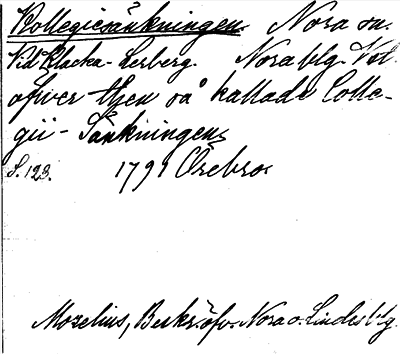 Kollegiesänkningen. Nora sn.
Vid Klacka-Lerberg. Nora blg. Väl
öfver then så kallade Colle-
gii-Sänkningen
S. 123. 1791 Örebro
Mozelius, Beskr. öfv. Nora o. Lindes blg.